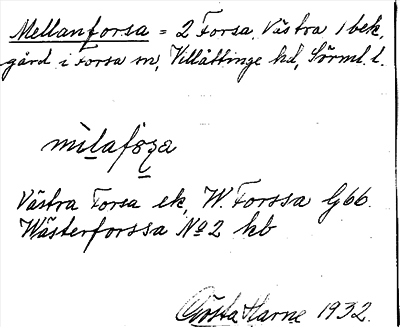 Mellanforsa = 2 Forsa, Västra, 1 bek.
gård i Forsa sn, Villåttinge hd, Sörml. l.
mìlafòʒa
Västra Forsa ek, W. Forssa Gbb.
Wästerforssa No 2 kb
Gösta Harne 1932.